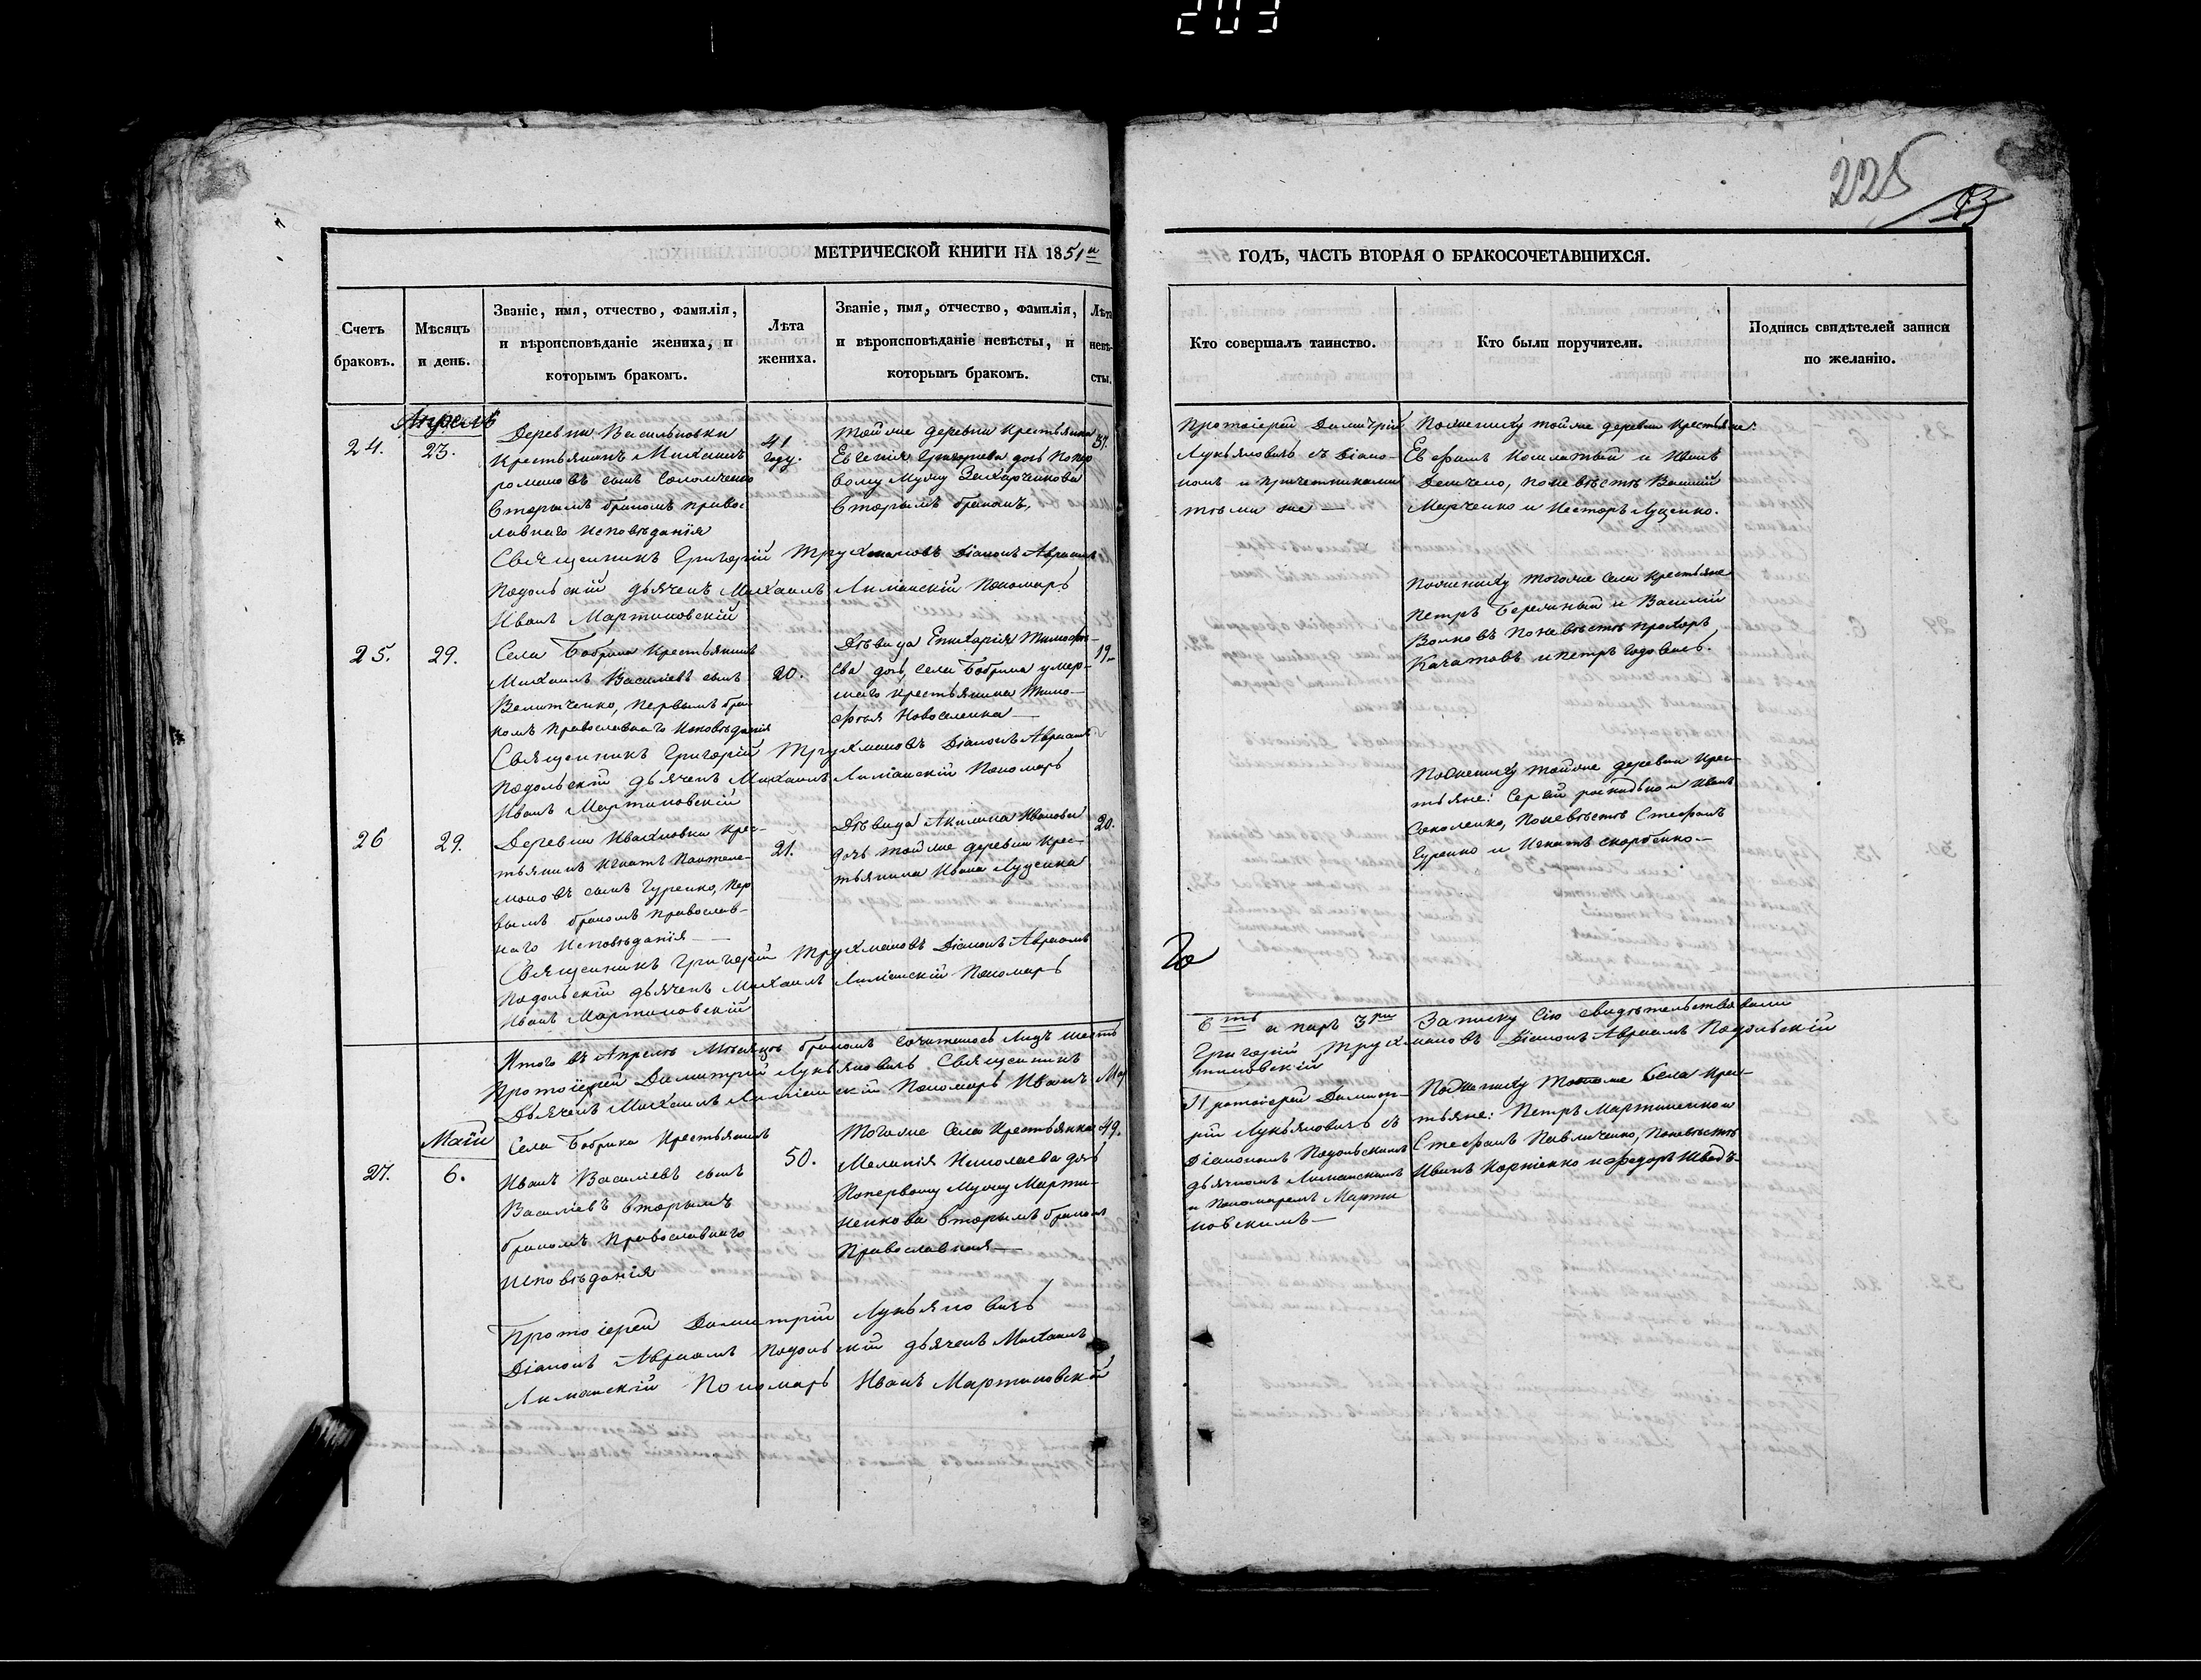 203
225
МЕТРИЧЕСКОЙ КНИГИ НА 1851й
ГОДЪ, ЧАСТЬ ВТОРАЯ О БРАКОСОЧЕТАВШИХСЯ.
Счетъ
браковъ.
Мѣсяцъ
и день.
Званіе, имя, отчество, фамилія,
и вѣроисповѣданіе жениха, и
которымъ бракомъ.
Лѣта
жениха.
Званіе, имя, отчество, фамилія,
и вѣроисповѣданіе невѣсты, и
которымъ бракомъ.
Лѣта
невѣ-
сты.
Кто совершалъ таинство.
Кто были поручители.
Подпись свидѣтелей записи
по желанію.
Апрель
24.
23.
Деревни Васильовки
Крестьянинъ Михаилъ
романовъ сынъ Соломченко
Вторымъ бракомъ правос
лавнаго исповѣданія
41
году.
тойже деревни крестьянка
Евгенія Григорьева дочь Попер
вому мужу Захарченкова
Вторымъ бракомъ,
37.
Протоіерей Димитрій
Лукьяновичъ съ діако-
номъ и причетниками
тѣми же —
Пожениху тойже деревни крестьяне:
Евфимъ и Иванъ
Демченко, поневѣстѣ Василій
Марченко и Несторъ Луценко.
Священникъ Григорій Трухмановъ Діаконъ Авраамъ
Подольскій дьячекъ Михаилъ Лиманскій Пономарь
Иванъ Мартиновскій
25.
29.
Села Бобрика Крестьянинъ
Михаилъ Василіевъ сынъ
Велитченко, первымъ бра-
комъ православнаго исповѣданія
20.
Дѣвица Епихарія Тимофѣ-
ева дочь, села Бобрика умер-
шаго крестьянина Тимо-
фѣя Новоселенка —
19-
Пожениху тогоже села крестьяне
Петръ Бережный и Василій
Волковъ поневѣстѣ Прохоръ
Качановъ и петръ Годовасъ.
Священникъ Григорій Трухмановъ Діаконъ Авраамъ
Подольскій дьячекъ Михаилъ Лиманскій Пономарь
Иванъ Мартиновскій
26
29.
Деревни Ивахновки крес-
тьянинъ Игнатъ Пантеле-
моновъ сынъ Гуренко, пер
вымъ бракомъ православ-
наго исповѣданія —
21.
Дѣвица Акилина Иванова
дочь тойже деревни крес-
тьянина Ивана Луценка
20.
Пожениху тойже деревни крес-
тьяне: Сергѣй и Иванъ
Соколенко, поневѣстѣ Стефанъ
Гуренко и Игнатъ Скорбенко —
Священникъ Григорій Трухмановъ Діаконъ Авраамъ
Подольскій дьячекъ Михаилъ Лиманскій Пономарь
Иванъ Мартиновскій
Итого въ Апрелѣ Мѣсяцѣ бракомъ сочеталось лицъ шесть
6ть а паръ 3ри Записку сію свидѣтельствовали
Протоіерей Димитрій Лукьяновичъ Священникъ
Григорій Трухмановъ Діаконъ Авраамъ Подольскій
Дьячекъ Михаилъ Лиманскій Пономарь Иванъ Мар
тиновскій
Маій
27.
6.
Села Бобрика Крестьянинъ
Иванъ Василіевъ сынъ
Василіевъ вторымъ
бракомъ православнаго
исповѣданія
50.
Тогоже села крестьянка
Меланія Николаева дочь
Попервому мужу Марти-
ненкова вторымъ бракомъ
Православная —
49.
Протоіерей Димит-
рій Лукьяновичъ съ
Діакономъ Подольскимъ
дьячкомъ Лиманскимъ
и Пономаремъ Марти
новскимъ —
Пожениху тогоже села крес-
тьяне: Петръ Мартиненко и
Стефанъ Павличенко, поневѣстѣ
Иванъ Карпенко и Федоръ Шведъ
Протоіерей Димитрій Лукьяновичъ
Діаконъ Авраамъ Подольскій дьячекъ Михаилъ
Лиманскій Пономарь Иванъ Мартиновскій